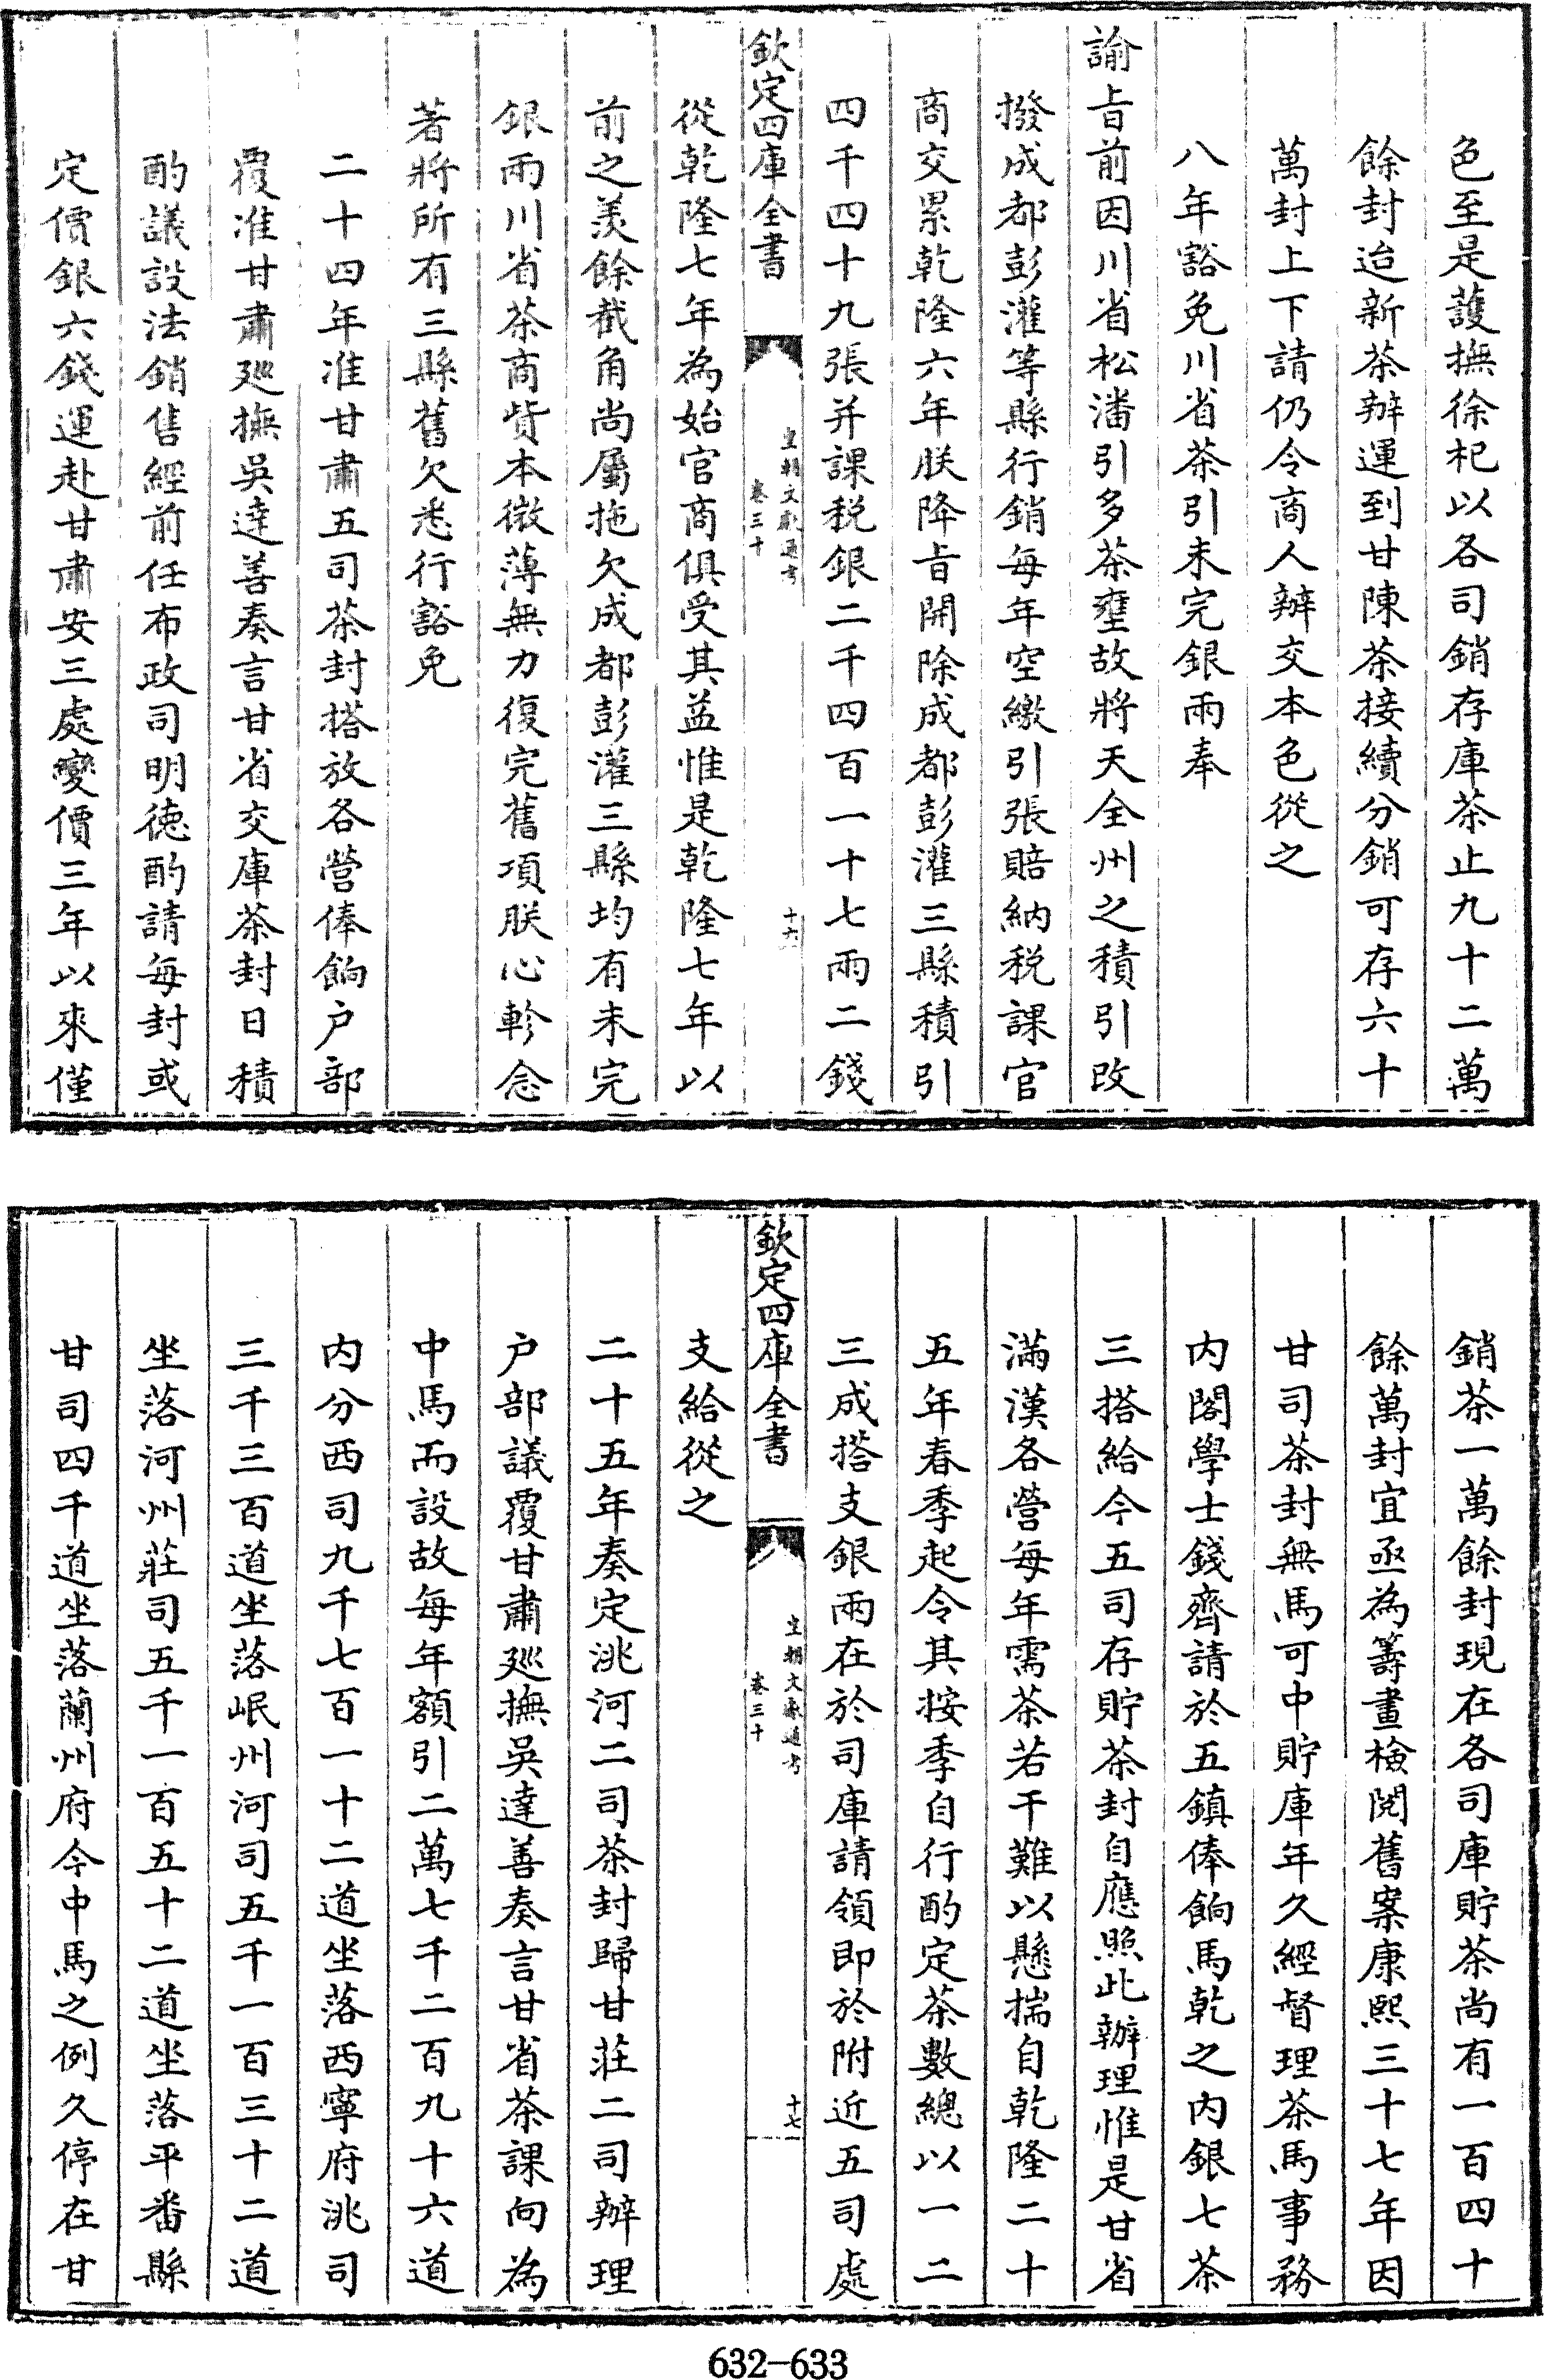 色至是護撫徐杞以各司銷存庫茶止九十二萬
餘封迨新茶辦運到甘陳茶接續分銷可存六十
萬封上下請仍令商人辦交本色從之
八年豁免川省茶引未完銀兩奉
諭旨前因川省松潘引多茶壅故將天全州之積引改
撥成都彭灌等縣行銷每年空繳引張賠納稅課官
商交累乾隆六年朕降旨開除成都彭灌三縣積引
四千四十九張并課稅銀二千四百一十七兩二錢
欽定四庫全書
皇朝文獻通考
卷三十
十六
從乾隆七年為始官商俱受其益惟是乾隆七年以
前之羨餘截角尚屬拖欠成都彭灌三縣均有未完
銀兩川省茶商貲本微薄無力復完舊項朕心軫念
著將所有三縣舊欠悉行豁免
二十四年准甘肅五司茶封搭放各營俸餉户部
覆准甘肅廵撫吳達善奏言甘省交庫茶封日積
酌議設法銷售經前任布政司明德酌請每封或
定價銀六錢運赴甘肅安三處變價三年以來僅
銷茶一萬餘封現在各司庫貯茶尚有一百四十
餘萬封宜亟為籌畫檢閱舊案康熙三十七年因
甘司茶封無馬可中貯庫年久經督理茶馬事務
内閣學士錢齊請於五鎮俸餉馬乾之内銀七茶
三搭給今五司存貯茶封自應照此辦理惟是甘省
滿漢各營每年需茶若干難以懸揣自乾隆二十
五年春季起令其按季自行酌定茶數總以一二
三成搭支銀兩在於司庫請領即於附近五司處
欽定四庫全書
皇朝文獻通考
卷三十
十七
支給從之
二十五年奏定洮河二司茶封歸甘莊二司辦理
户部議覆甘肅廵撫吳達善奏言甘省茶課向為
中馬而設故每年額引二萬七千二百九十六道
内分西司九千七百一十二道坐落西寧府洮司
三千三百道坐落岷州河司五千一百三十二道
坐落河州莊司五千一百五十二道坐落平番縣
甘司四千道坐落蘭州府今中馬之例久停在甘
632-633